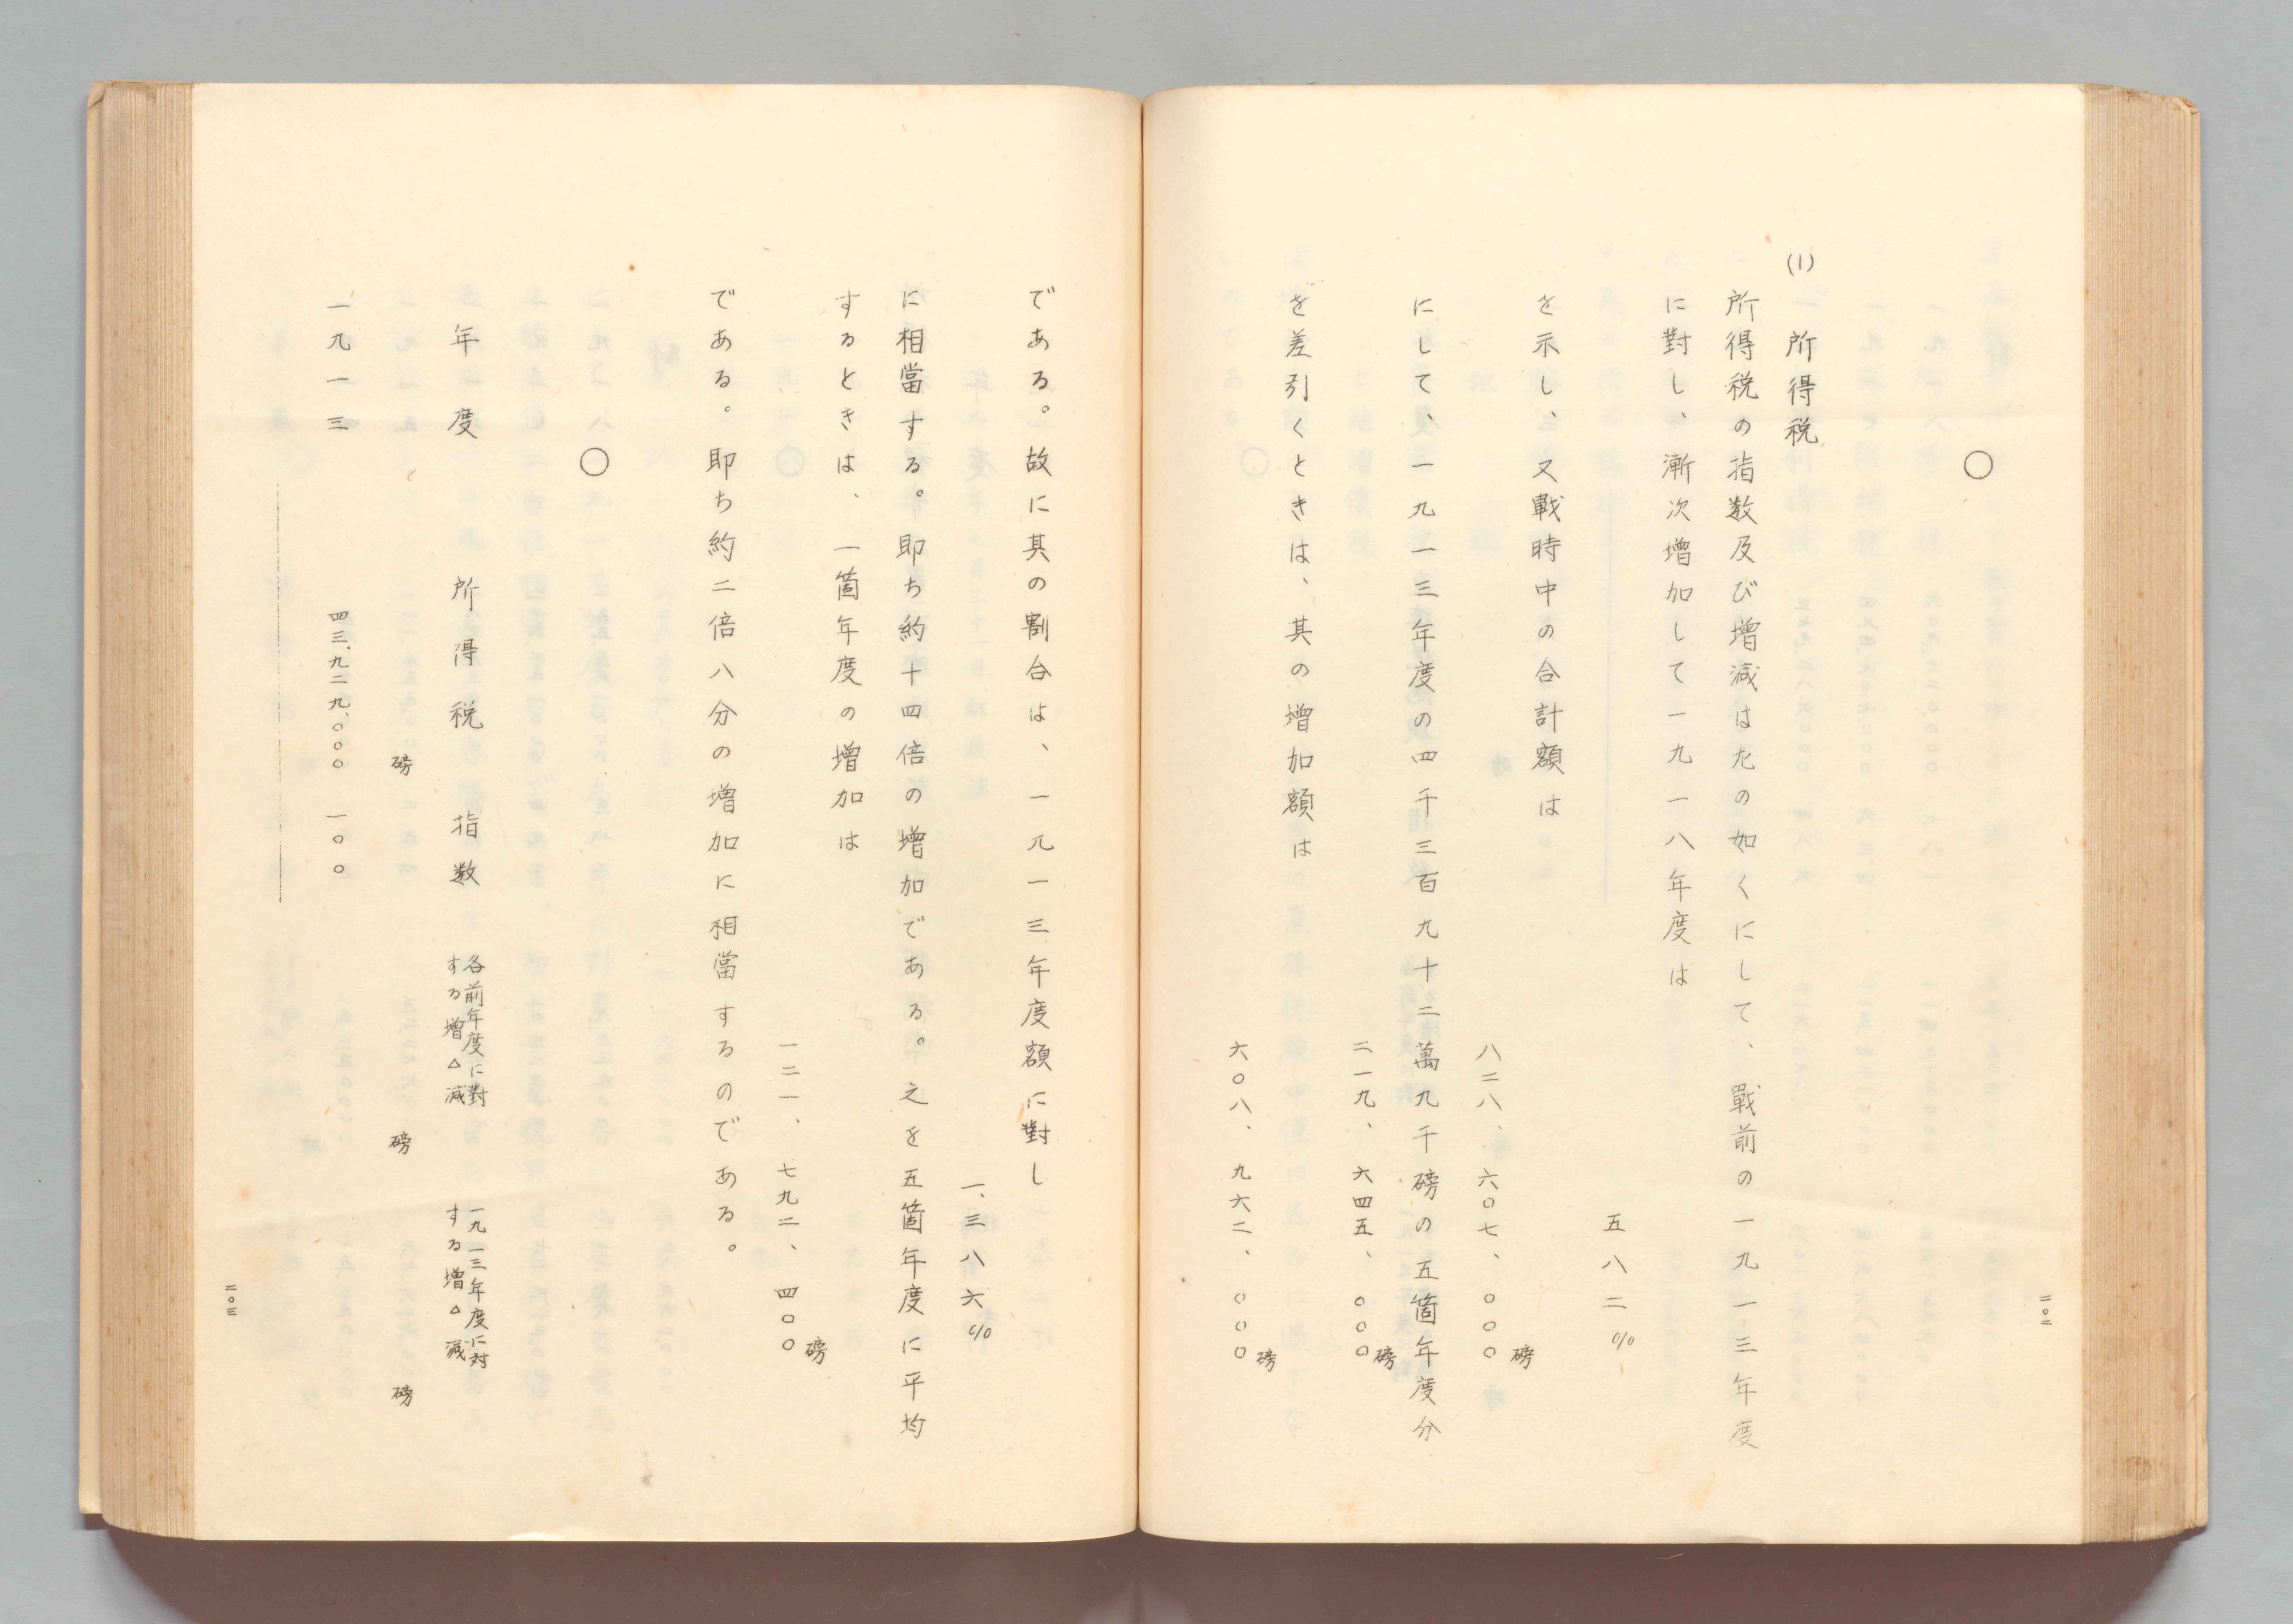 ○
(1) 所得税
所得税の指数及び増減は左の如くにして、戰前の一九一三年度
に對し、漸次増加して一九一八年度は
五八二%
を示し、又戰時中の合計額は
磅
八二八、六〇七、〇〇〇
にして、一九一三年度の四千三百九十二萬九千磅の五箇年度分
磅
二一九、六四五、〇〇〇
を差引くときは、其の増加額は
磅
六〇八、九六二、〇〇〇
二〇二
である。故に其の割合は、一九一三年度額に對し
一、三八六%
に相當する。即ち約十四倍の増加である。之を五箇年度に平均
するときは、一箇年度の増加は
磅
一二一、七九二、四〇〇
である。即ち約二倍八分の増加に相當するのである。
○
年度 所得税 指数 各前年度に對する増△減 一九一三年度に対する増△減
磅 磅 磅
一九一三 四三、九二九、〇〇〇 一〇〇
二〇三